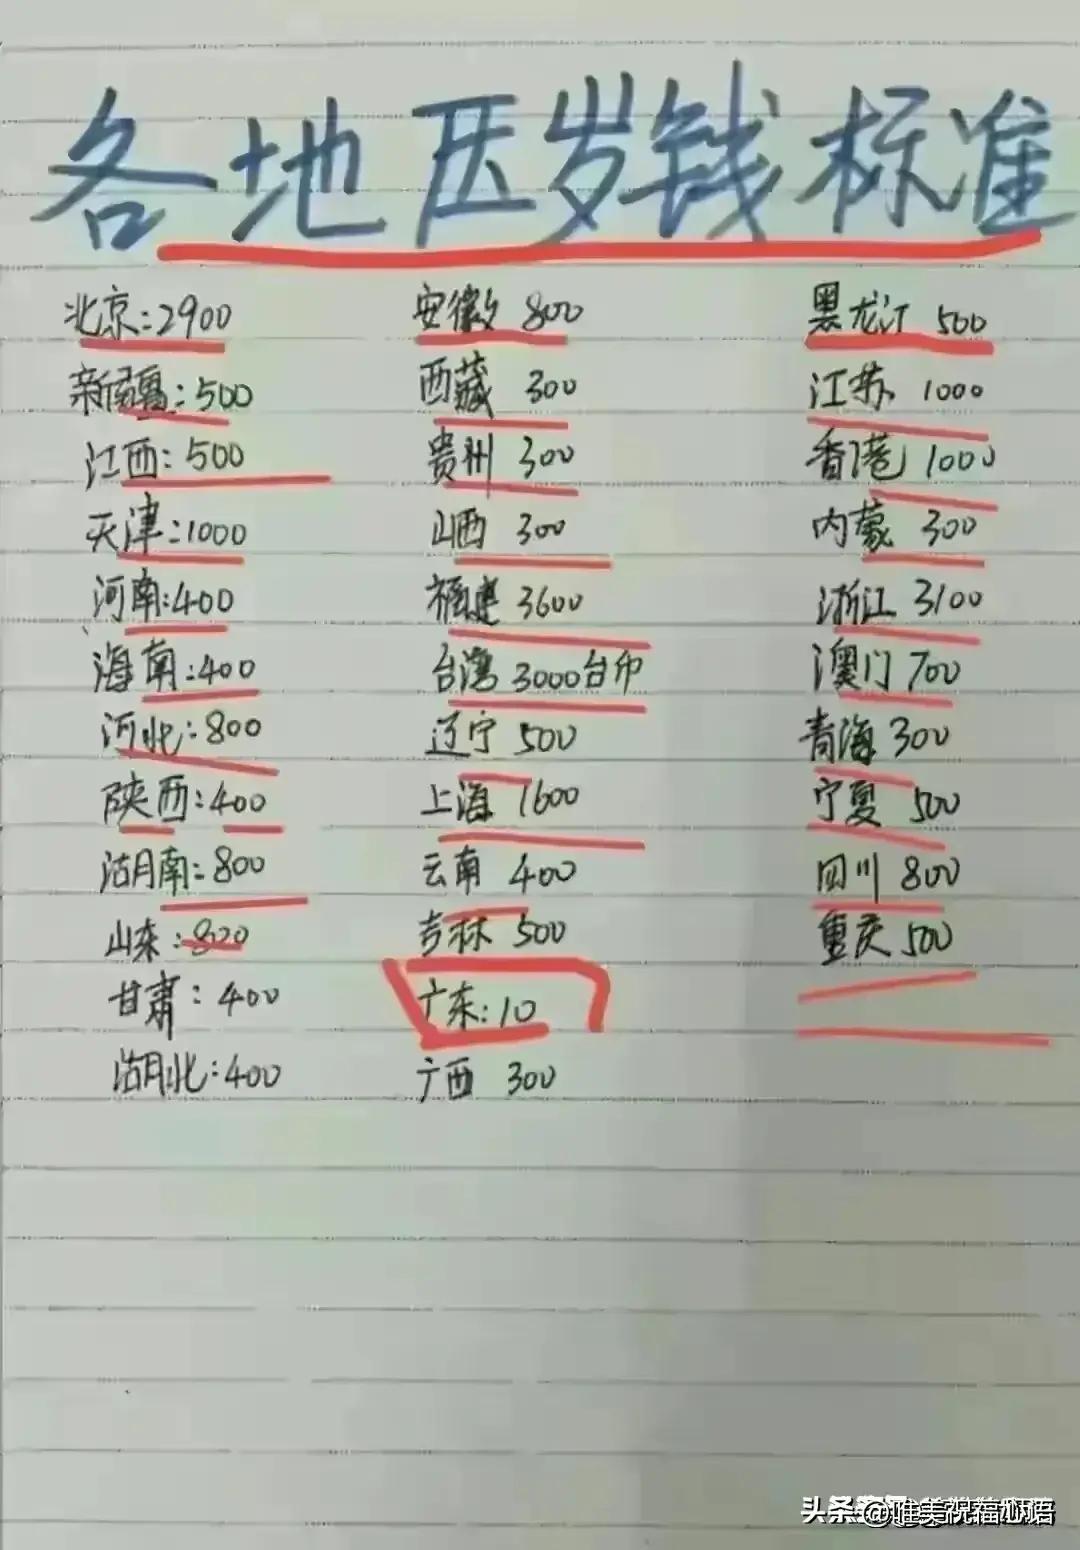 各地压岁钱标准
北京:2900 安徽 800 黑龙江 500
新疆:500 西藏 300 江苏 1000
江西:500 贵州 300 香港 1000
天津:1000 山西 300 内蒙 300
河南:400 福建 3600 浙江 3100
海南:400 台湾 3000台币 澳门 700
河北:800 辽宁 500 青海 300
陕西:400 上海 1600 宁夏 500
湖南:800 云南 400 四川 800
山东:800 吉林 500 重庆 500
甘肃:400 广东:10
湖北:400 广西 300
头条 @唯美祝福心语